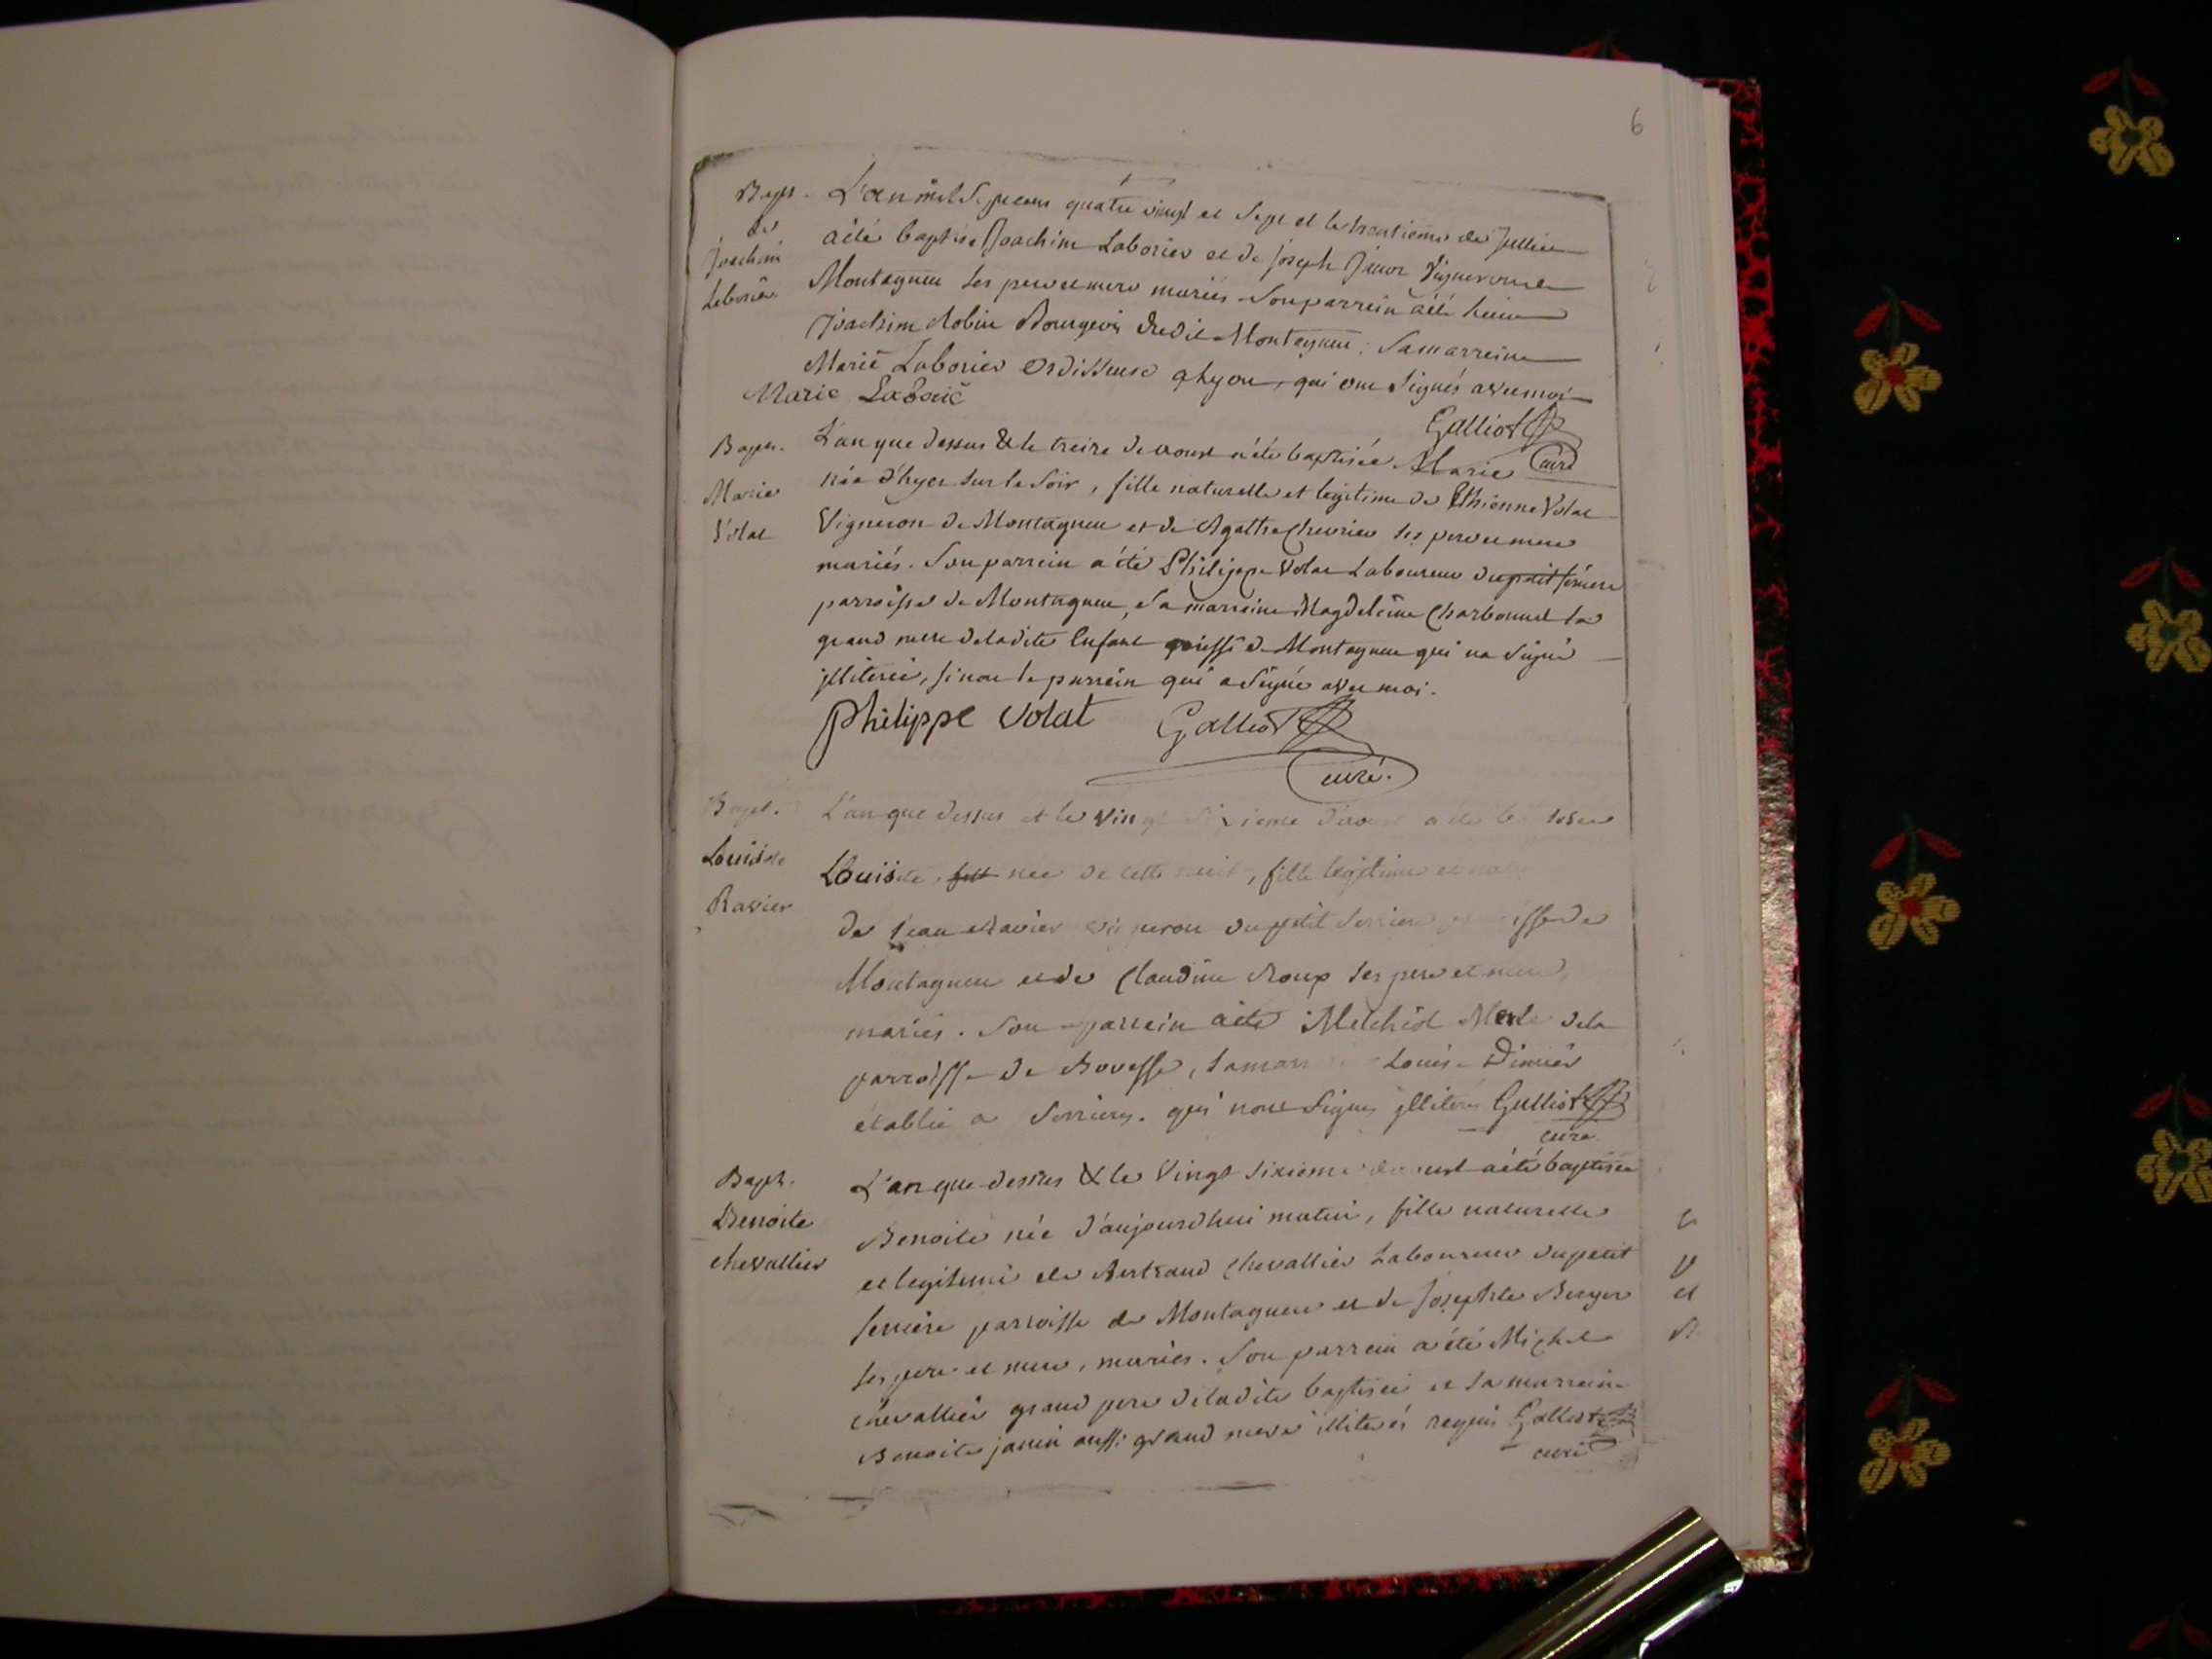 6
Bapt. L'an mil sept cent quatre vingt et sept et le trentieme de Juillet
de Joachim Laborier
a été baptisé Joachim Laborier et de Joseph Janon Vigneron de
Montagneu ses pere et mere mariés. Son parrein a été
Joachim Robin Bourgeois dudit Montagneu, sa marreine
Marie Laborier Ordisseuse a Lyon, qui ont Signés avec moi
Marie Laborié
Galliot
curé
Bapt. L'an que dessus & le treize d'aoust a été baptisée Marie
Marie Volat
née d'hyer sur le soir, fille naturelle et legitime de Ethienne Volat
Vigneron de Montagneu et de Agathe Chevrier ses pere et mere
mariés. Son parrein a été Philippe Volat Laboureur du petit serriere
parroisse de Montagneu, sa marreine Magdeleine Charbonnel la
grand mere de ladite Enfant aussi de Montagneu qui n'a Signé
illiterée, sinon le parrein qui a Signé avec moi.
Philippe Volat Galliot
curé.
Bapt. L'an que dessus et le vingt d'aoust a été
Louise Ravier
Louise née de cette nuit, fille legitime et
de Jean Ravier vigneron du petit serriere parroisse de
Montagneu et de Claudine Roup ses pere et mere,
mariés. Son parrein a été Melchiol Merle de la
parroisse de Bouesse, sa Louise Dimier
établie a Serrieres. qui n'ont Signés illiterés Galliot
curé
Bapt. L'an que dessus & le Vingt Sixieme d'aoust a été baptisée
Benoite chevallier
Benoite née d'aujourdhui matin, fille naturelle
et legitime de Bertrand Chevallier Laboureur du petit
serriere parroisse de Montagneu et de Josephte Berger
ses pere et mere, mariés. Son parrein a été Michel
chevallier grand pere de ladite baptisée et sa marreine
Benoite janin aussi grand mere illiterés requis Galliot
curé